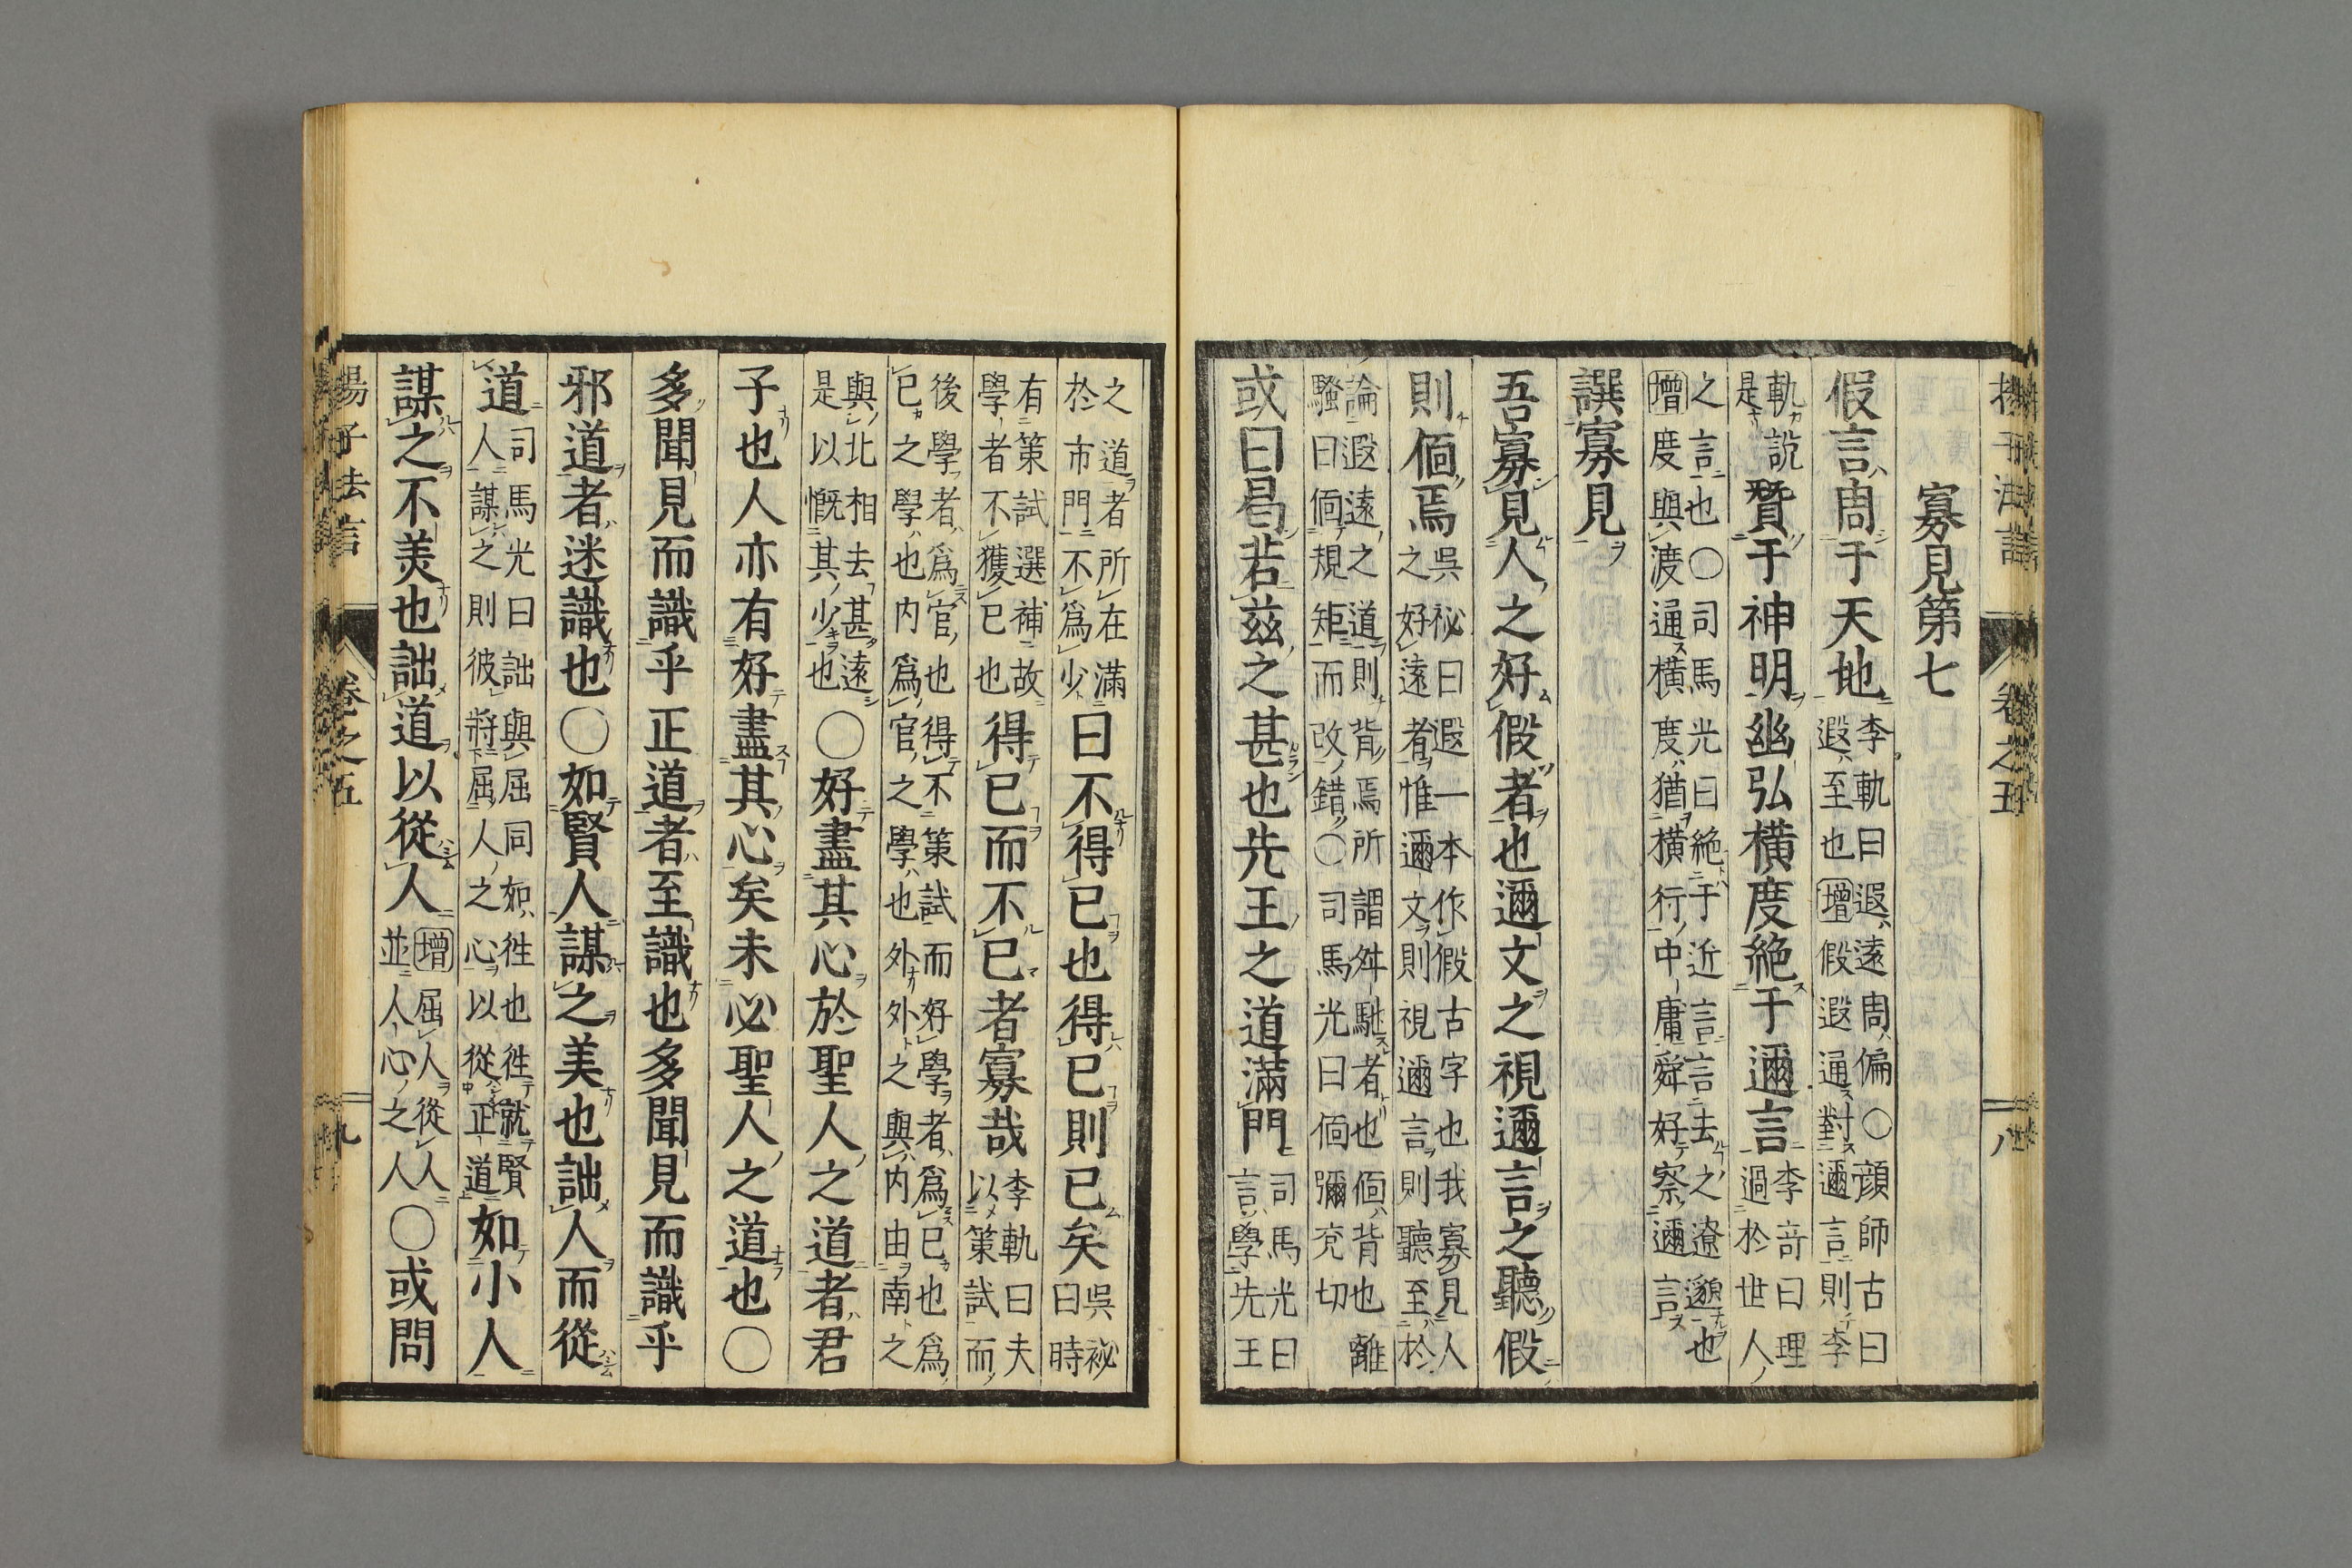 寡見第七
假言周于天地
李軌曰遐遠周偏○顔師古曰
遐至也增假遐通對邇言則李
軌説
是
贊于神明幽弘横度絶于邇言
李竒曰理
過於世人
之言也○司馬光曰絶于近言言去之遼邈也
增度與渡通横度猶横行中庸舜好察邇言
譔寡見
吾寡見人之好假者也邇文之視邇言之聽假
則偭焉
吳祕曰遐一本作假古字也我寡見人
之好遠者惟邇文則視邇言則聽至於
論遐遠之道則背焉所謂舛馳者也偭背也離
騷曰偭規矩而改錯○司馬光曰偭彌兖切
或曰曷若兹之甚也先王之道滿門
司馬光曰
言學先王
之道者所在滿
於市門不爲少
曰不得已也得已則已矣
吳祕
曰時
有策試選補故
學者不獲已也
得已而不已者寡哉
李軌曰夫
以策試而
後學者爲官也得不策試而好學者爲已也爲
已之學也内爲官之學也外外之與内由南之
與北相去甚遠
是以慨其少也
○好盡其心於聖人之道者君
子也人亦有好盡其心矣未必聖人之道也○
多聞見而識乎正道者至識也多聞見而識乎
邪道者迷識也○如賢人謀之美也詘人而從
道
司馬光曰詘與屈同如徃也徃就賢
人謀之則彼將屈人之心以從正道
如小人
謀之不美也詘道以從人
增屈人從人
並人心之人
○或問
楊子法言
卷之五
九
卷之五
八